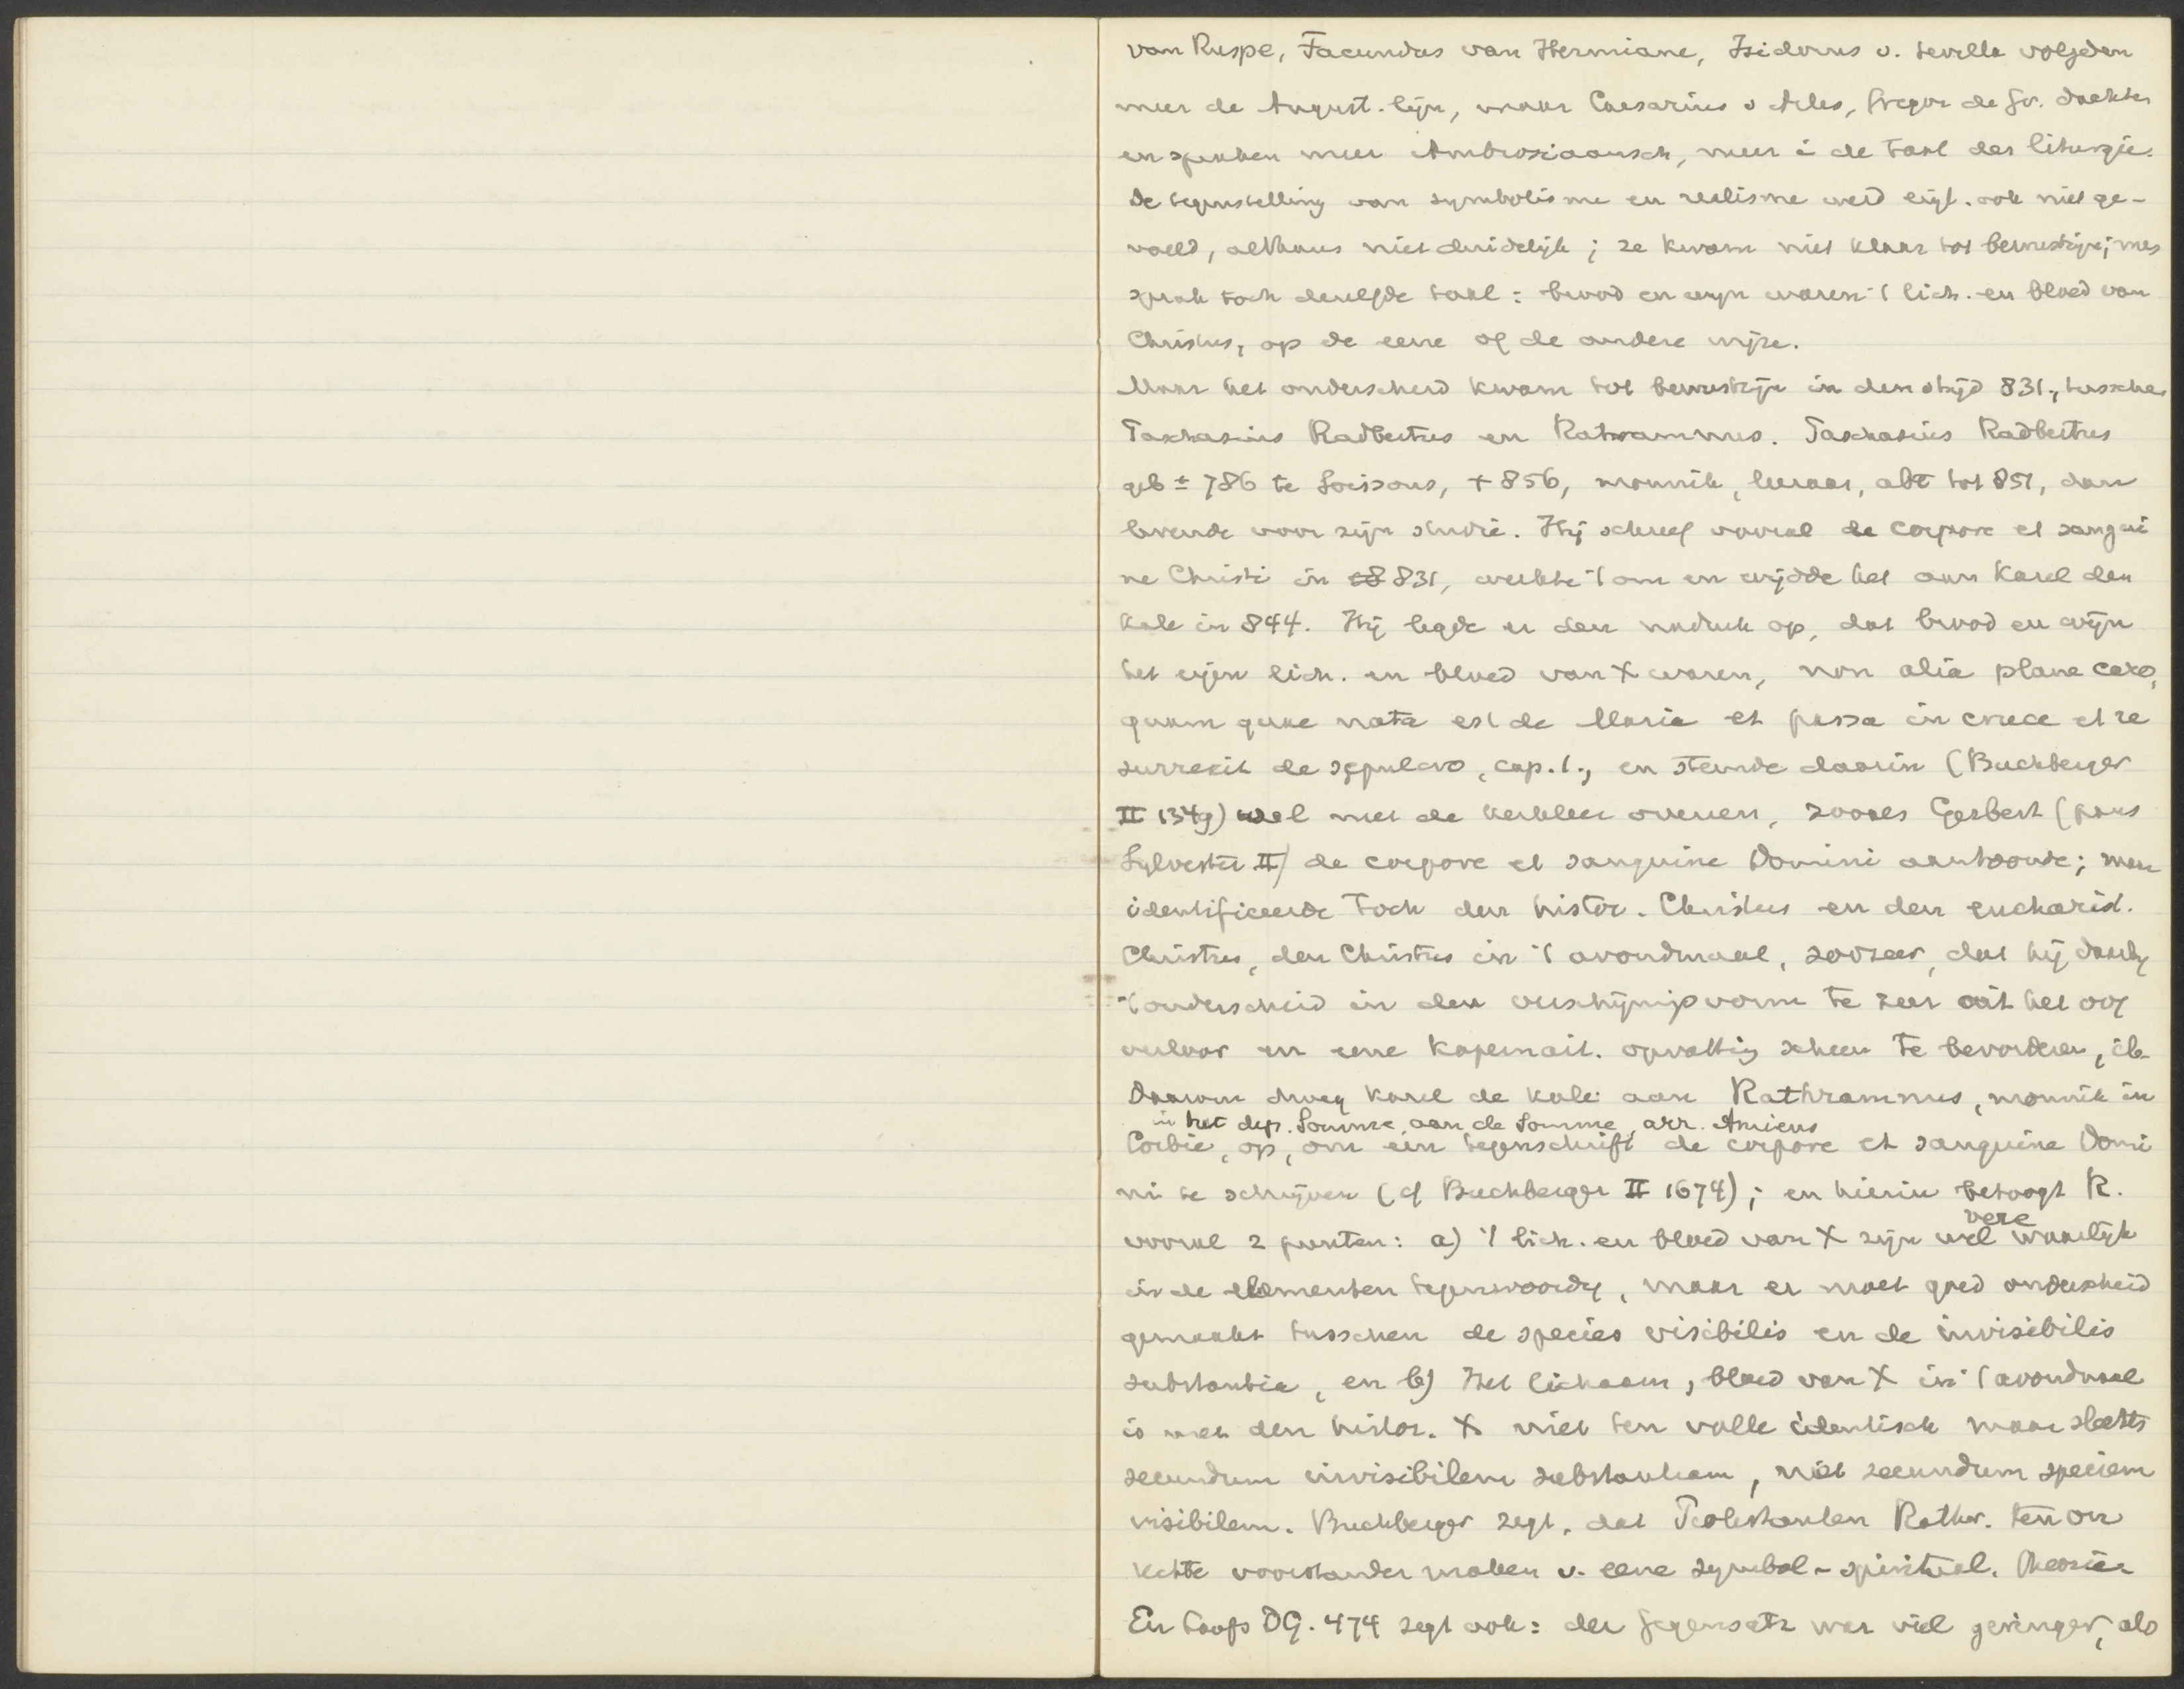 van Ruspe, Facundus van Hermiane, Isidorus v. Sevilla volgden
meer de August. lijn, maar Caesarius v Arles, Gregor de Gr. dachten
en spraken meer Ambrosiaansch, meer i de taal der liturgie.
De tegenstelling van symbolisme en realisme werd eigl. ook niet ge-
voeld, althans niet duidelijk; ze kwam niet klaar tot bewustzijn; men
sprak toch dezelfde taal: brood en wijn waren 't lich. en bloed van
Christus, op de eene of de andere wijze.
Maar het onderscheid kwam tot bewustzijn in den strijd 831., tusschen
Paschasius Radbertus en Ratramnus. Paschasius Radbertus
geb ± 786 te Soissons, + 856, monnik, leeraar, abt tot 851, dan
levende voor zijn studie. Hij schreef vooral de corpore et sangui
ne Christi in 831, werkte 't om en wijdde het aan Karel den
Kale in 844. Hij legde er den nadruk op, dat brood en wijn
het eigen lich. en bloed van X waren, non alia plane caro,
quam quae nata est de Maria et passa in cruce et re
surrexit de sepulcro, cap. 1., en stemde daarin (Buchberger
II 1349) wel met de kerkleer overeen, zooals Gerbert (paus
Sylvester II) de corpore et sanguine Domini aantoonde; maar
identificeerde toch den histor. Christus en den eucharist.
Christus, den Christus in 't avondmaal, zoozeer, dat hij daarbij
't onderscheid in den verschijningsvorm te zeer uit het oog
verloor en eene kapernait. opvatting scheen te bevorderen, ib.
Daarom droeg Karel de Kale aan Rathramnus, monnik in
in het dep. Somme, aan de Somme, arr. Amiens
Corbie, op, om een tegenschrift de corpore et sanguine Domi
ni te schrijven (cf Buchberger II 1674); en hierin betoogt R.
vooral 2 punten: a) 't lich. en bloed van X zijn wel vere waarlijk
in de elementen tegenwoordig, maar er moet goed onderscheid
gemaakt tusschen de species visibilis en de invisibilis
substantia, en b) Het lichaam, bloed van X in 't avondmaal
is met den histor. X niet ten volle identisch maar slechts
secundum invisibilem substantiam, niet secundum speciem
visibilem. Buchberger zegt, dat Protestanten Rathr. ten on
rechte voorstander maken v. eene symbol-spiritual. theorie.
En Loofs DG. 474 zegt ook: der Gegensatz war viel geringer, als